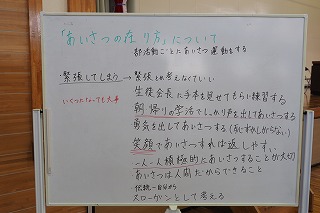 「あいさつの在り方」について
部活動ごとにあいさつ運動をする
・緊張してしまう → 緊張とか考えなくていい
生徒会長に手本を見せてもらい練習する
いくつになっても大事
朝帰りの学活でしっかり声を出してあいさつする
勇気を出してあいさつする(恥ずかしがらない)
笑顔であいさつすれば返しやすい
一人一人積極的にあいさつすることが大切
あいさつは人間だからできること
伝統→自分から
スローガンとして考える